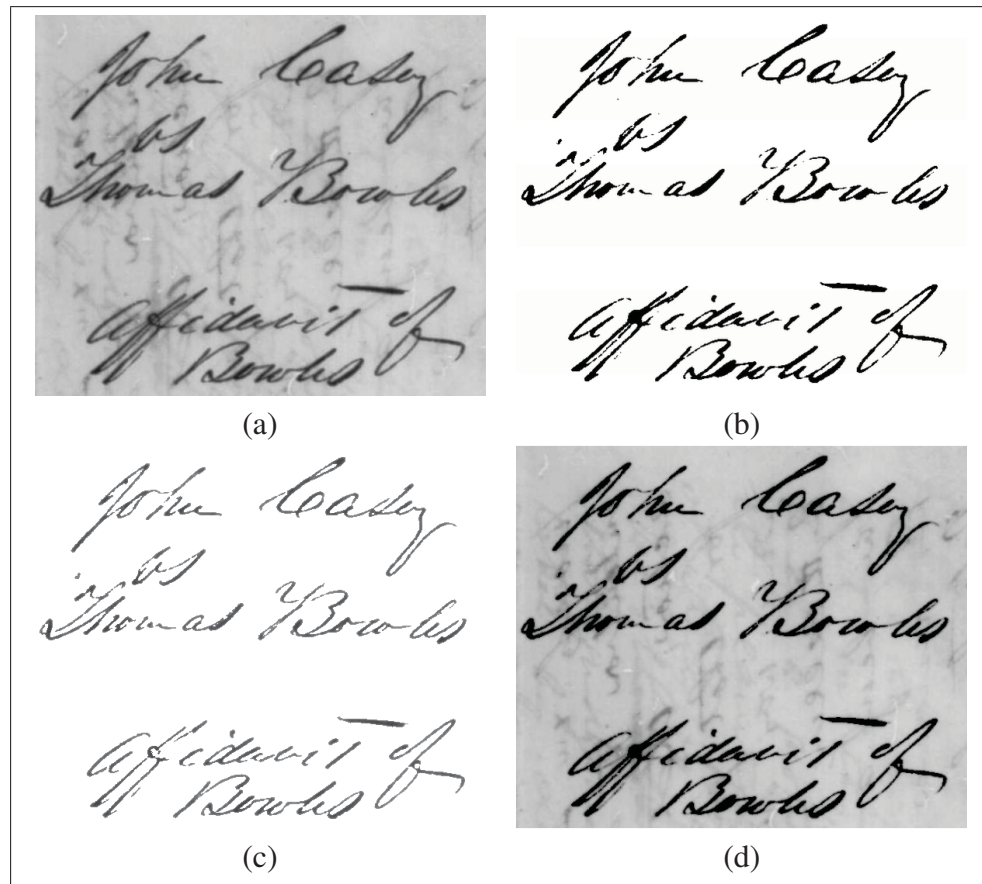 John Casey
vs
Thomas Bowles
Affidavit of
Bowles
(a)
John Casey
vs
Thomas Bowles
Affidavit of
Bowles
(b)
John Casey
vs
Thomas Bowles
Affidavit of
Bowles
(c)
John Casey
vs
Thomas Bowles
Affidavit of
Bowles
(d)